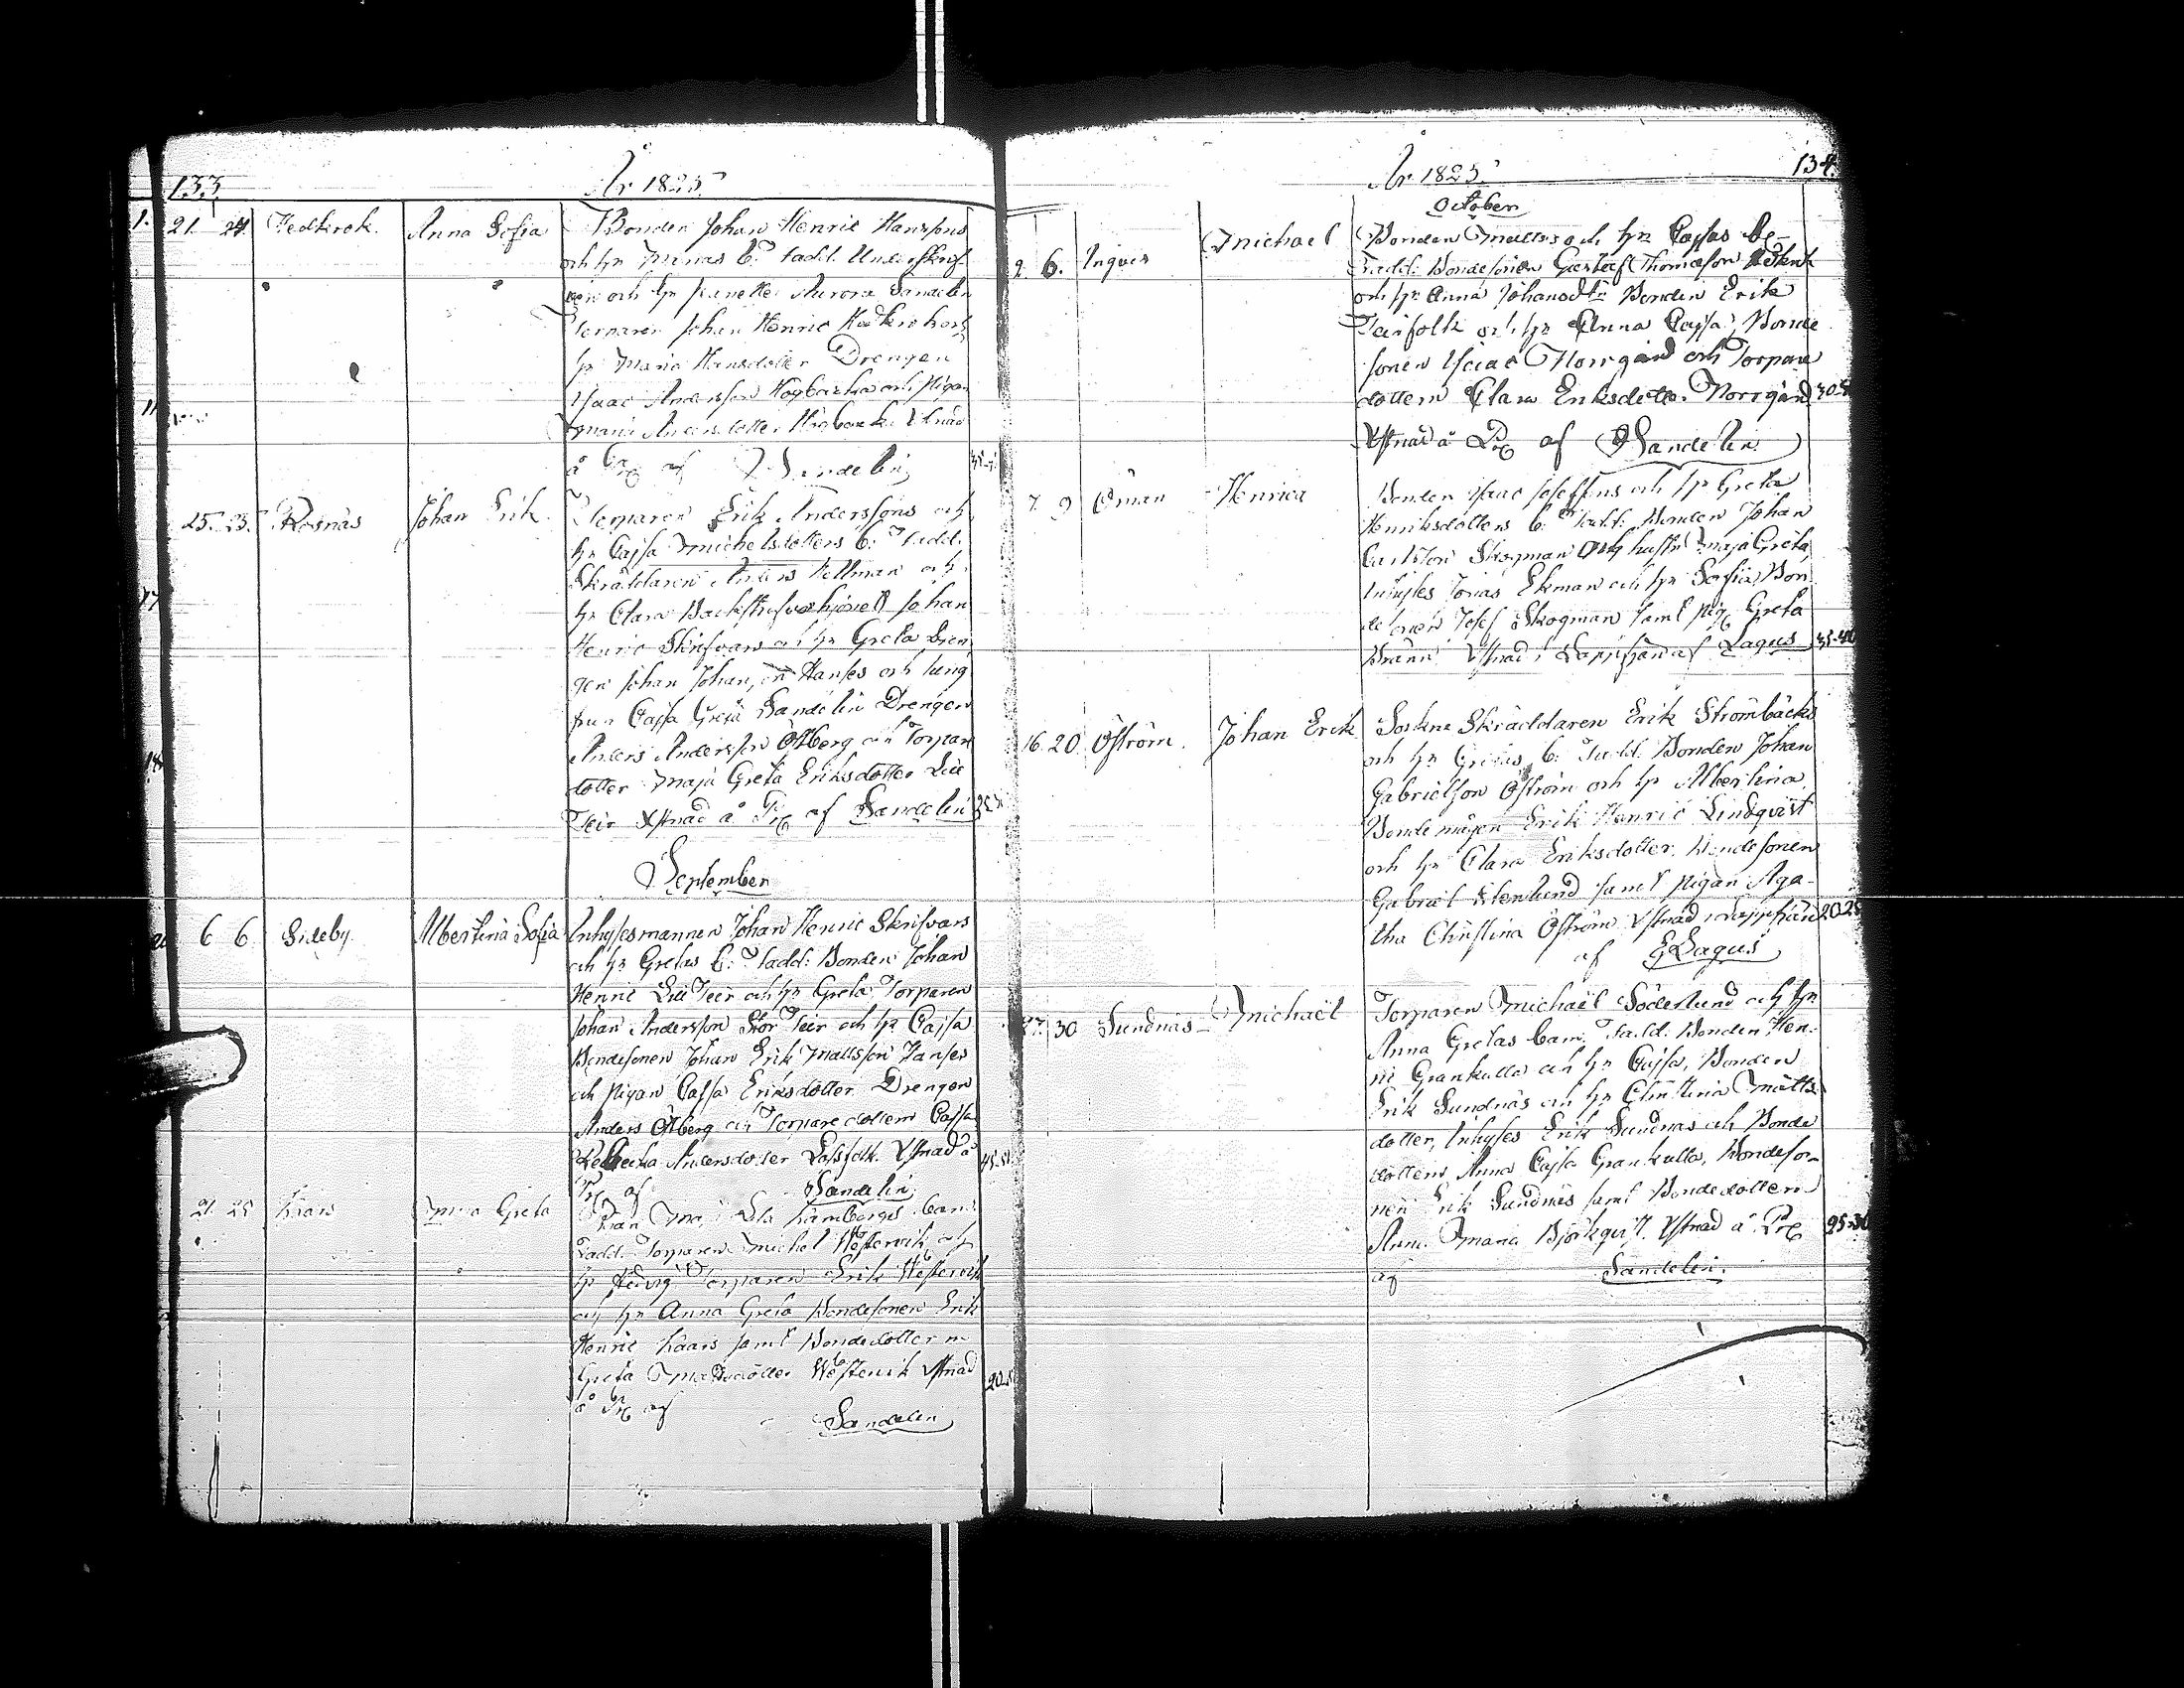 133.
År 1825.
21. 24. Hedkrok. Anna Sofia Bonden Johan Henric Hanssons
och hr b: Fadd. Underskrif-
och hr Aurora Sandelin
Torparen Johan Henric och
hr Maria Hansdotter Drengen
Isaac Andersson Högbacka och pigan
Maria Andersdotter Högbacka Vttnad
å af Sandelin
25. 25. Rosnäs Johan Erik. Torparen Erik Anderssons och
hr Cajsa Michelsdotters b: Fadd.
Skräddaren Anders Hellman och
hr Clara Johan
Henric Skrifvars och hr Greta Dren
gen Johan Johansson Hanses och Jung
frun Cajsa Greta Sandelin Drengen
Anders Andersson Östberg och Torpare
dotter Maja Greta Eriksdotter Lill
Teir Vttnad å af Sandelin
September
6 6 Sideby. Albertina Sofia Inhysesmannen Johan Henric Skrifvars
och hr Gretas b: Fadd: Bonden Johan
Henric Lill Teir och hr Greta Torparen
Johan Andersson Stor Teir och hr Cajsa
Bondesonen Johan Erik Mattsson Hanses
och pigan Cajsa Eriksdotter Drengen
Anders Östberg och Torpare dottern Cajsa
Rebecka Andersdotter Vttnad å
af Sandelin
21. 25 Kaars Greta Pigan barn
Fadd. Torparen Michel Westervik och
hr Hedvig Torparen Erik Westervik
och hr Anna Greta Bondesonen Erik
Henric Kaars samt Bondedottern
Greta Mattsdotter Westervik Vttnad
å af
Sandelin
134.
År 1825.
October
2 6. Ingves Michael Bonden Mattsons och hr Cajsas b-
Fadd: Bondesonen Gustaf Thomasson
och hr Anna Johansdtr Bonden Erik
Teirfolk och hr Anna Cajsa, Bonde
sonen Isaac Norrgård och Torpare
dottern Clara Eriksdotter Norrgård
Vttnad å af Sandelin
7. 9 Öman Henrica Bonden Isaac Joseffsons och hr Greta
Henriksdotters b: Fadd: Bonden Johan
Carlsson Skogman och hustr Maja Greta,
Inhyses Jonas Ekman och hr Sofia, Bon
de sonen Josef Skogman samt pig. Greta
Bränn Vttnad i Lappfjärd af Lagus 35-40
16. 20. Öström. Johan Erik Sockne Skräddaren Erik Strömbäcks
och hr Gretas b: Fadd: Bonden Johan
Gabrielson Öström och hr Albertina
Bonde mågen Erik Henric Lindqvist
och hr Clara Eriksdotter, Bondesonen
Gabriel samt pigan Aga-
tha Christina Öström Vttnad i Lappfjärd 20.25
af Lagus
27. 30 Sundnäs Michaël Torparen Michaël Söderlund och hr
Anna Gretas barn. Fadd. Bonden Hen-
ric Grankulla och hr Cajsa, Bonden
Erik Sundnäs och hr Christina Matts-
dotter, Inhyses Erik Sundnäs och Bonde
dottern Anna Cajsa Grankulla, Bondeso-
nen Erik Sundnäs samt Bondedottern
Anna Maria Björkqvist. Vttnad å 25-30
af Sandelin.